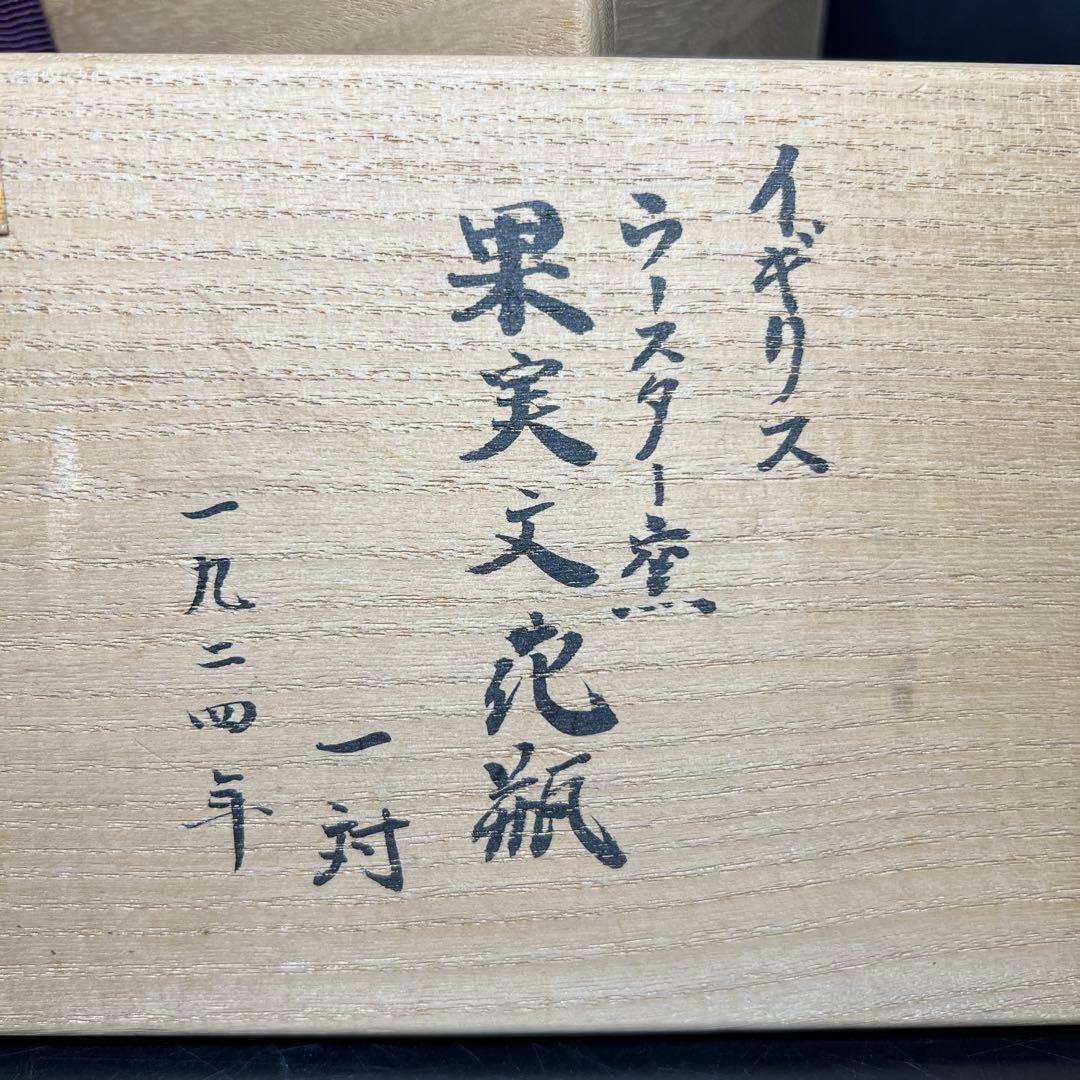 イギリス
ウースター窯
果実文花瓶
一対
一九二四年